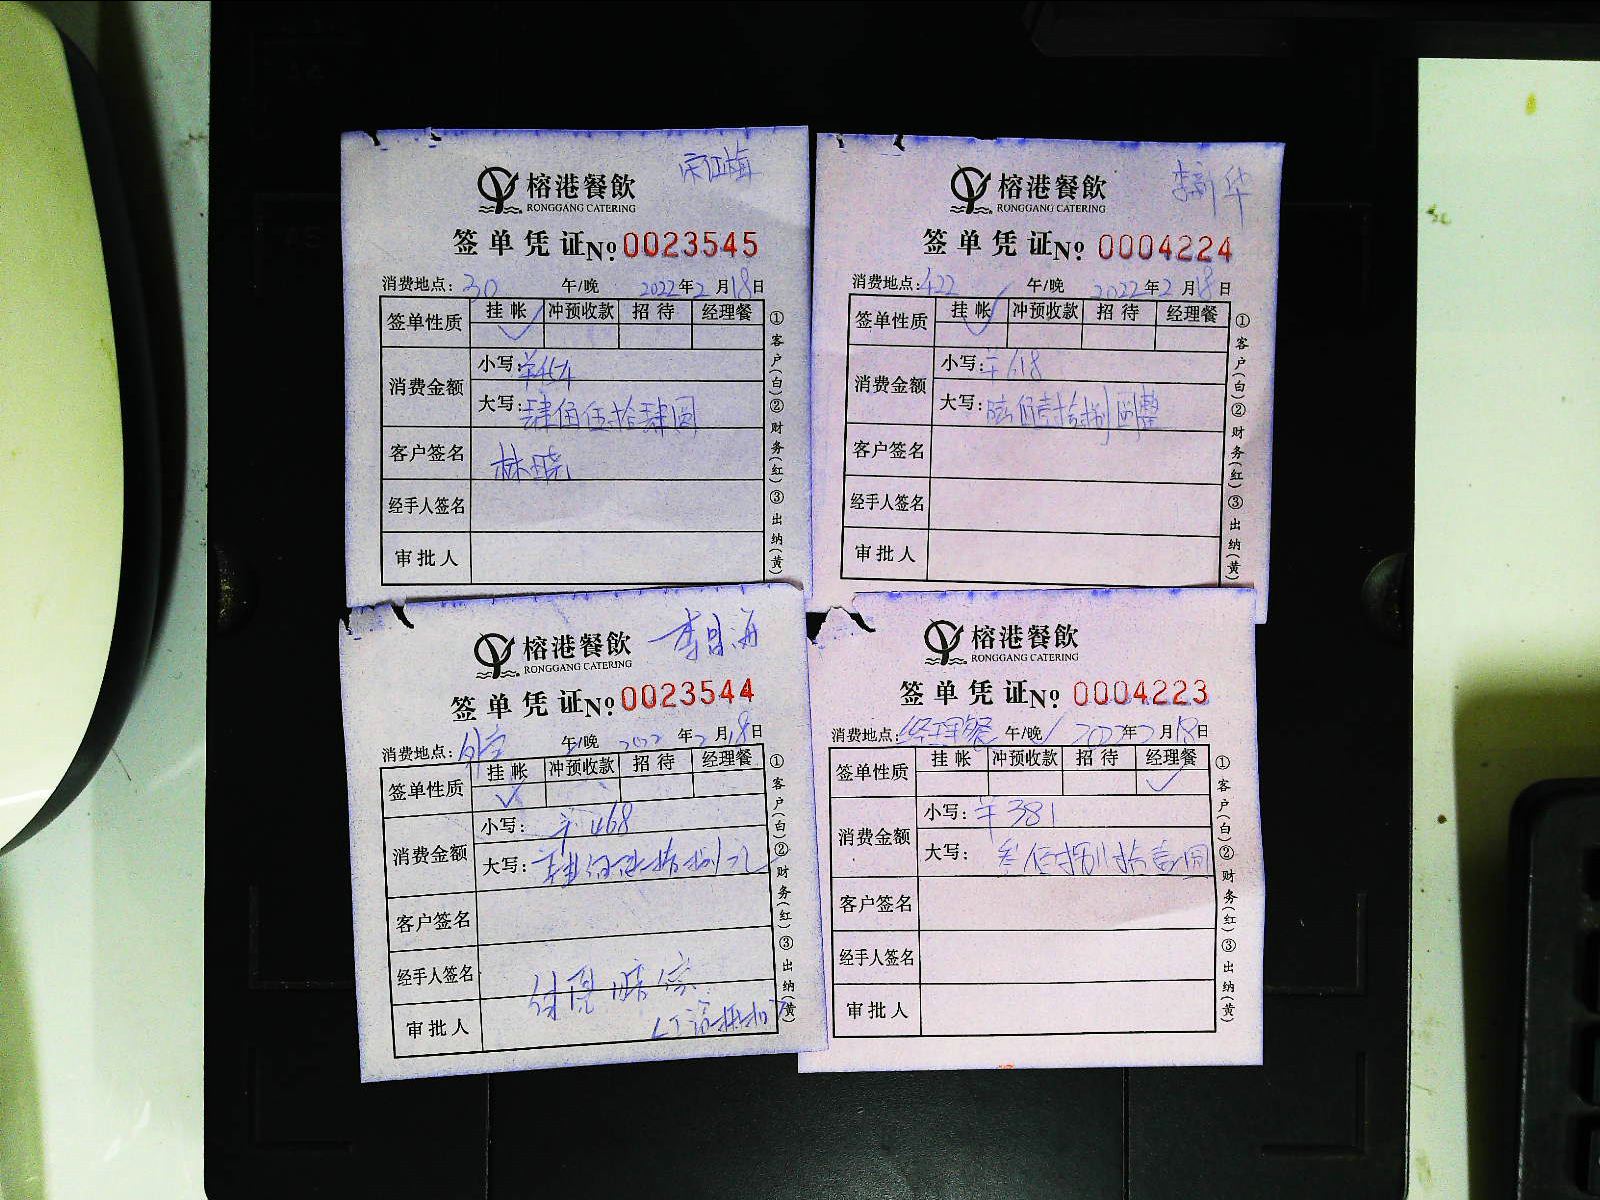 宋红梅
榕港餐飲
RONGGANG CATERING
签单凭证 No 0023545
消费地点: 30 午/晚 2022年2月18日
签单性质 挂帐 冲预收款 招待 经理餐
✓
消费金额
小写: ¥454
大写: 肆佰伍拾肆圆
客户签名 林晓
经手人签名
审批人
①客户(白)②财务(红)③出纳(黄)
李新华
榕港餐飲
RONGGANG CATERING
签单凭证 No 0004224
消费地点: 422 午/晚 2022年2月18日
签单性质 挂帐 冲预收款 招待 经理餐
✓
消费金额
小写: ¥618
大写: 陆佰壹拾捌圆整
客户签名
经手人签名
审批人
①客户(白)②财务(红)③出纳(黄)
李昌海
榕港餐飲
RONGGANG CATERING
签单凭证 No 0023544
消费地点: 午/晚 2022年2月18日
签单性质 挂帐 冲预收款 招待 经理餐
✓
消费金额
小写: ¥468
大写: 肆佰陆拾捌元
客户签名
经手人签名
审批人
①客户(白)②财务(红)③出纳(黄)
榕港餐飲
RONGGANG CATERING
签单凭证 No 0004223
消费地点: 经理餐 午/晚 2022年2月18日
签单性质 挂帐 冲预收款 招待 经理餐
✓
消费金额
小写: ¥381
大写: 叁佰捌拾壹圆
客户签名
经手人签名
审批人
①客户(白)②财务(红)③出纳(黄)